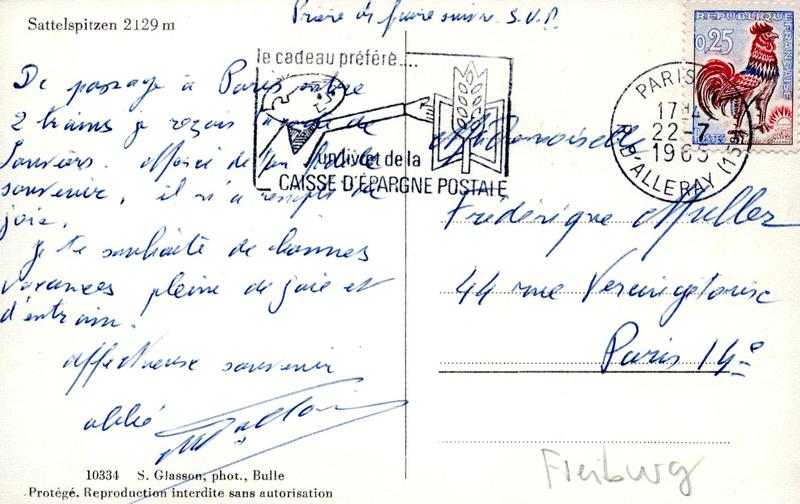 Sattelspitzen 2129 m
Prière de faire suivre S.V.P.
REPUBLIQUE FRANÇAISE
0,25
POSTES
le cadeau préféré....
un livret de la
CAISSE D'EPARGNE POSTALE
PARIS
17H
22-7
1965
R. D'ALLERAY (15e)
De passage à Paris entre
2 trains je reçois
Louviers.
souvenir, il m'a rempli de
joie.
Je te souhaite de bonnes
vacances pleine de joie et
d'entrain.
affectueux souvenir
abbé
Mademoiselle
Frédérique Muller
44 rue Vercingétorix
Paris 14e
10334 S. Glasson, phot., Bulle
Protégé. Reproduction interdite sans autorisation
Freiburg